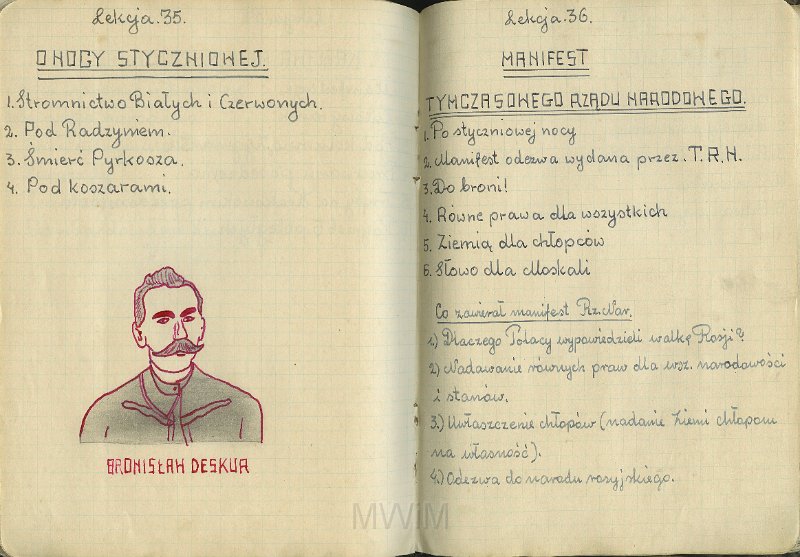 Lekcja.35.
O NOCY STYCZNIOWEJ.
1. Stromnictwo Białych i Czerwonych.
2. Pod Radzyniem.
3. Śmierć Pyrkosza.
4. Pod koszarami.
BRONISŁAW DESKUR
Lekcja.36.
MANIFEST
TYMCZASOWEGO RZĄDU NARODOWEGO.
1. Po styczniowej nocy
2. Manifest odezwa wydana przez. T.R.N.
3. Do broni!
4. Równe prawa dla wszystkich
5. Ziemią dla chłopców
6. Słowo dla Moskali
Co zawierał manifest Rz.Nar.
1.) Dlaczego Polacy wypowiedzieli walkę Rosji?
2) Nadawanie równych praw dla wsz. narodowości
i stanów.
3.) Uwłaszczenie chłopów (nadanie ziemi chłopom
na własność).
4.) Odezwa do narodu rosyjskiego.
MWIM